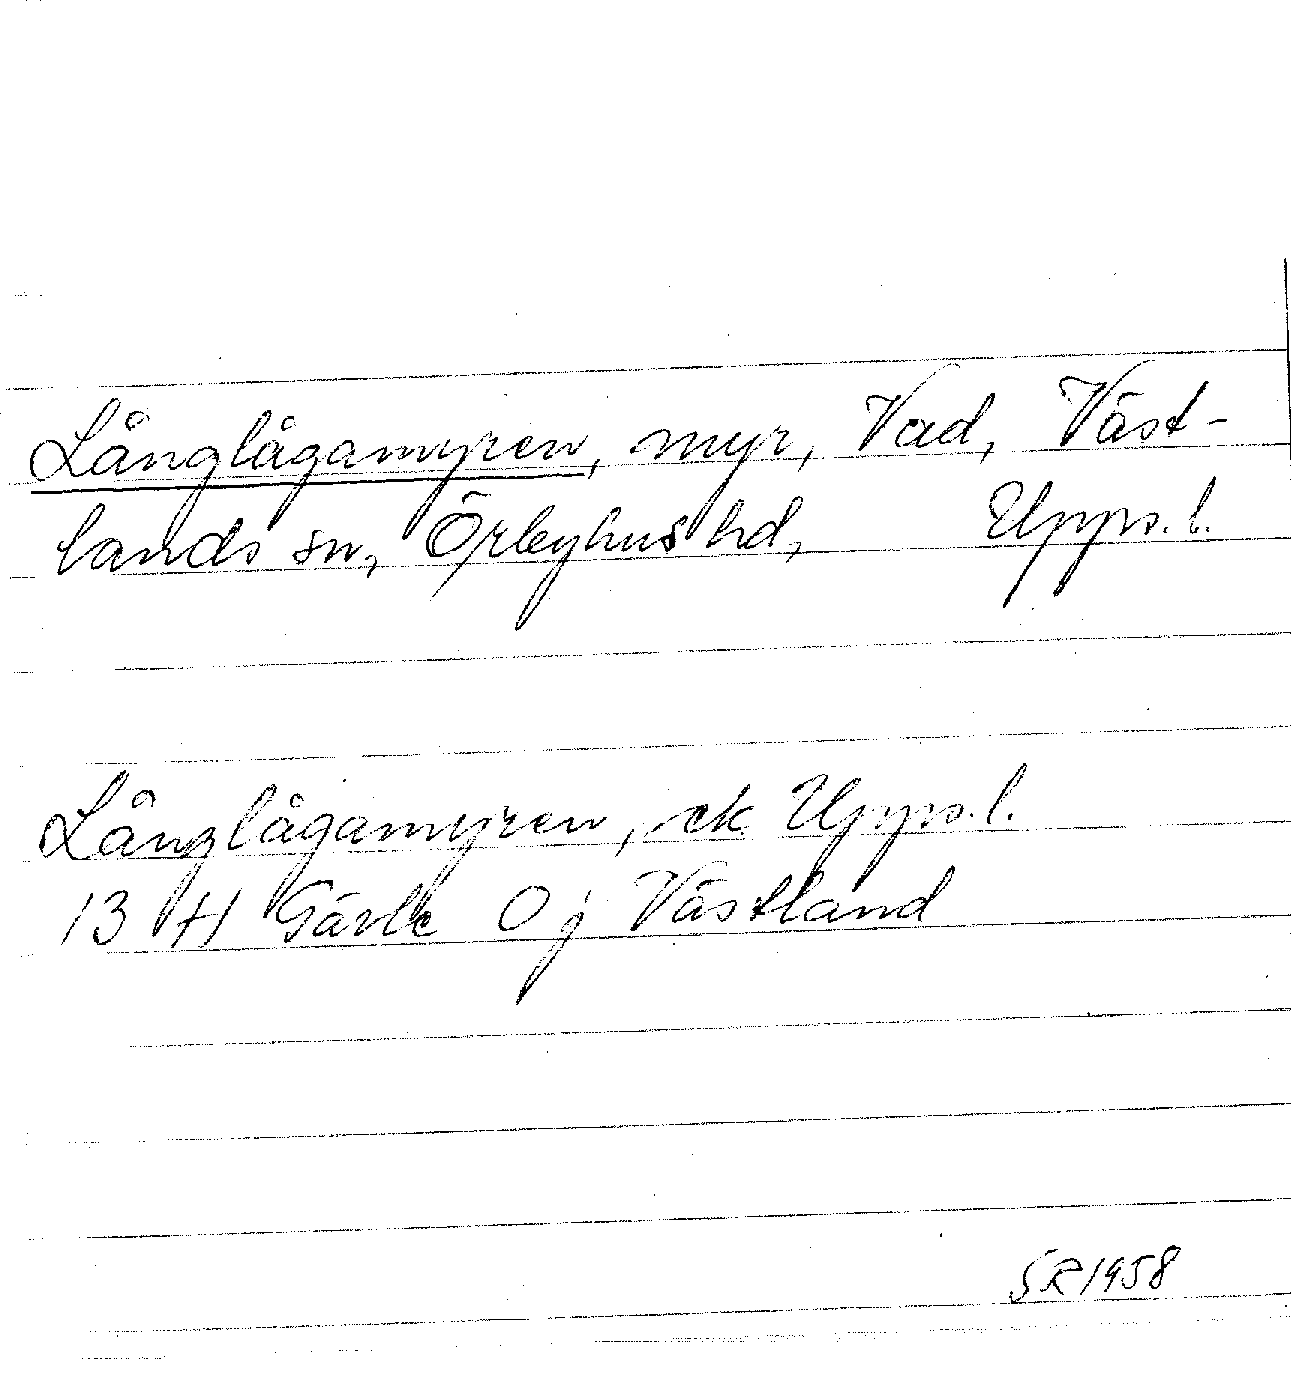 Långlågamyren, myr, Vad, Väst-
lands sn, Örbyhus hd, Upps. l.
Långlågamyren, ek Upps. l.
13 H Gävle 0 j Västland
SR 1958